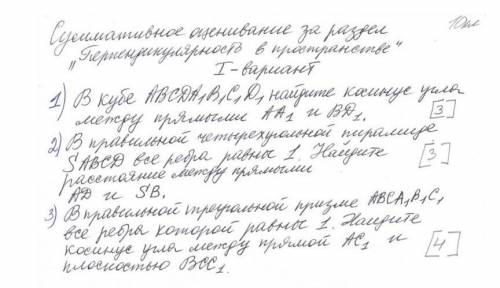 Суммативное оценивание за раздел 10кл
„Перпендикулярность в пространстве“
I-вариант
1) В кубе ABCDA₁B₁C₁D₁ найдите косинус угла
между прямыми AA₁ и BD₁. [3]
2) В правильной четырехугольной пирамиде
SABCD все ребра равны 1. Найдите [3]
расстояние между прямыми
AD и SB.
3) В правильной треугольной призме ABCA₁B₁C₁
все ребра которой равны 1. Найдите
косинус угла между прямой AC₁ и [4]
плоскостью BCC₁.